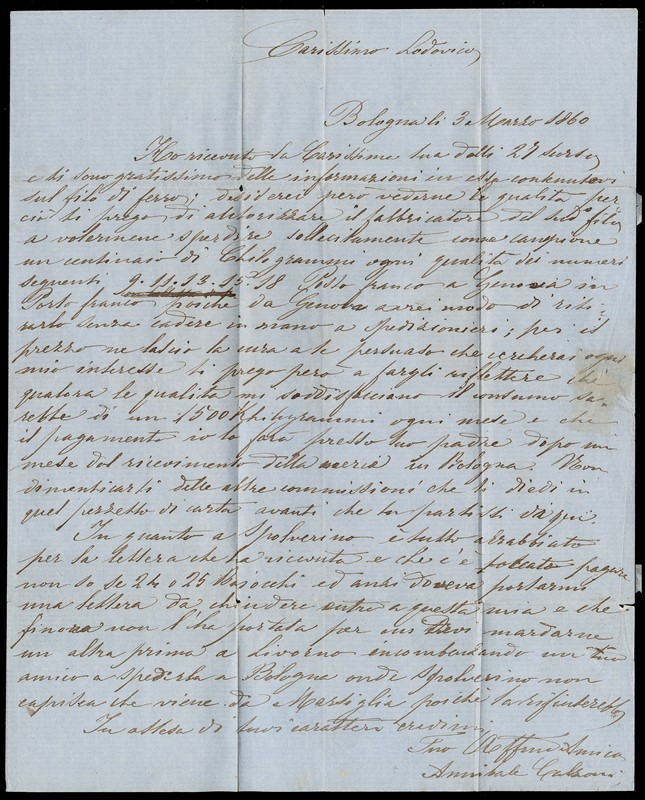 Carissimo Lodovico
Bologna li 3 Marzo 1860
Ho ricevuto la Carissima tua delli 27 scorso
e ti sono gratissimo delle informazioni in essa contenutevi
sul filo di ferro; desiderei però vederne le qualità per
ciò ti prego di autorizzare il fabbricatore del tuo filo
a volermene spedire sollecitamente come campione
un centinaio di Chilogrammi ogni qualità dei numeri
seguenti 9. 11. 13. 15. 18 Posto franco a Genova in
Porto franco; poichè da Genova avrei modo di riti-
rarlo senza cadere in mano a spedizionieri; per il
prezzo ne lascio la cura a te persuaso che cercherai ogni
mio interesse ti prego però a fargli riflettere che
qualora le qualità mi soddisfacciano il consumo sa-
rebbe di un 15000 Chilogrammi ogni mese e che
il pagamento io lo farà presso tuo padre dopo un
mese dal ricevimento della merce in Bologna. Non
dimenticarti delle altre commissioni che ti diedi in
quel pezzetto di carta avanti che tu partissi da qui.
In quanto a Spolverino è tutto arrabbiato
per la lettera che ha ricevuta e che c'è toccato pagare
non so se 24 o 25 Baiocchi ed anzi doveva portarmi
una lettera da chiudere entro a questa mia e che
finora non l'ha portata per cui devi mandarne
un altra prima a Livorno incombenzando un tuo
amico a spedirla a Bologna onde Spolverino non
capisca che viene da Marsiglia poichè la rifiuterebbe
In attesa di tuoi caratteri credimi
Tuo Aff.mo Amico
Annibale